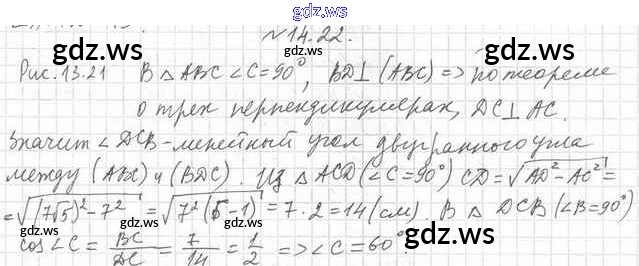 gdz.ws
№14.22.
gdz.ws gdz.ws gdz.ws
Рис. 13.21 В △ ABC ∠C=90°, BD⊥(ABC) => по теореме
о трех перпендикулярах, DC⊥AC.
Значит ∠DCB - линейный угол двугранного угла
между (ABC) и (BDC). Из △ ACD (∠C=90°) CD = √(AD²-AC²) =
= √((7√5)²-7²) = √(7²(5-1)) = 7·2 = 14 (см) В △ DCB (∠B=90°)
cos∠C = BC/DC = 7/14 = 1/2 => ∠C=60°.
gdz.ws gdz.ws gdz.ws